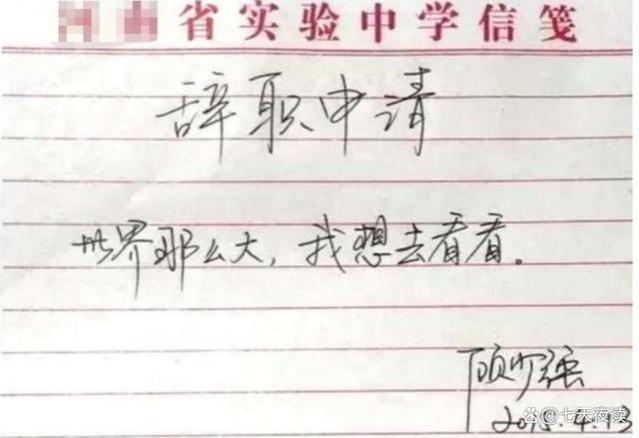 省实验中学信笺
辞职申请
世界那么大，我想去看看。
顾少强
2015.4.13
七天夜读